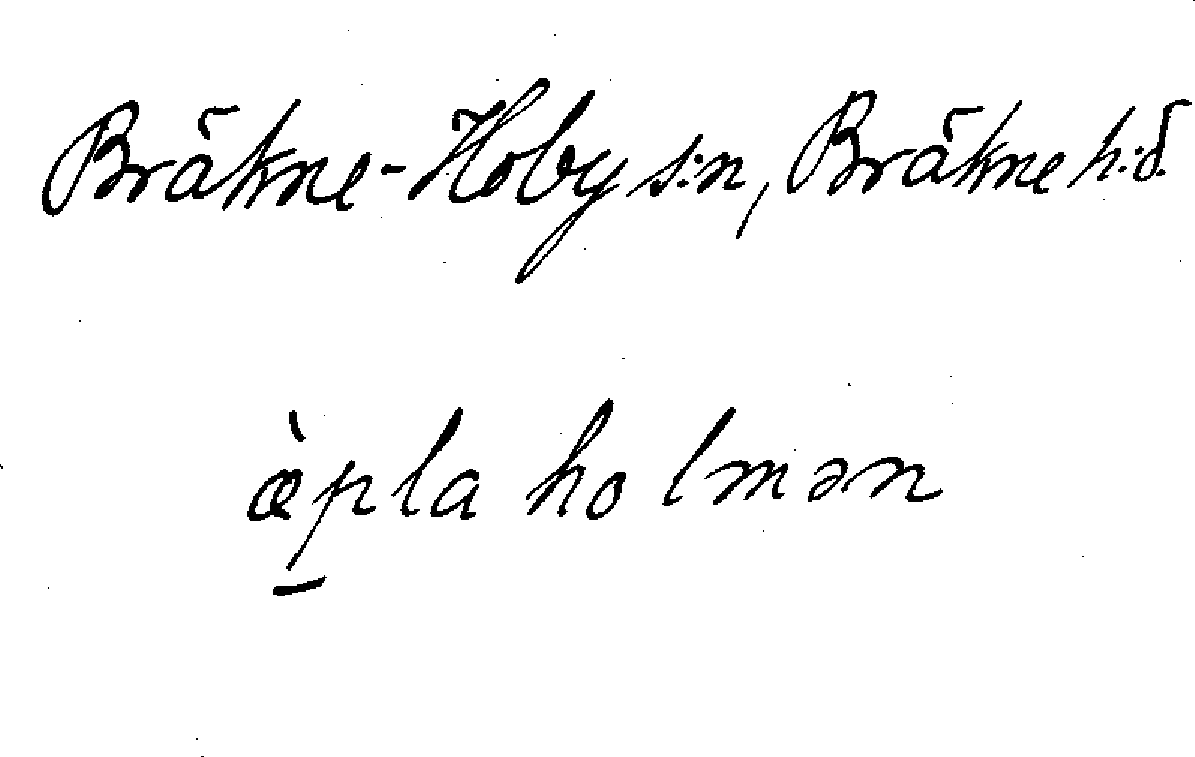 Bräkne-Hoby s:n, Bräkne h:d.
æ̀p̠la holmən